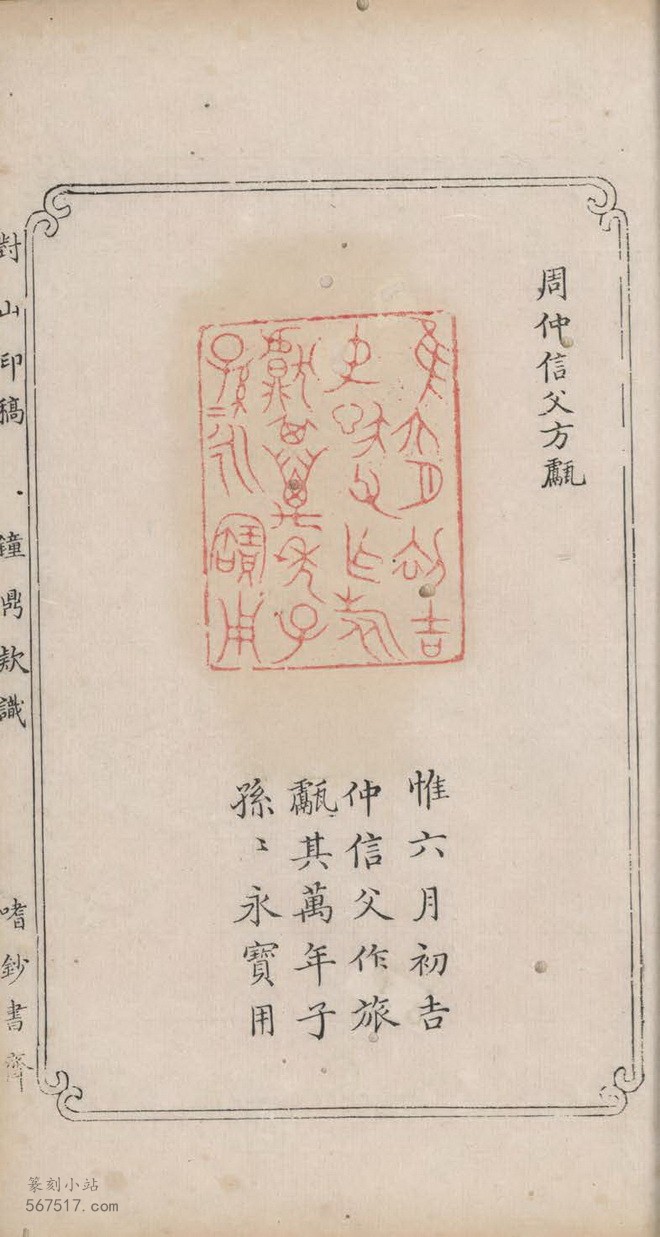 周仲信父方甗
惟六月初吉
仲信父作旅
甗其萬年子
孫〻永寶用
對山印稿 · 鐘鼎款識 嗜鈔書齋
篆刻小站
567517.com